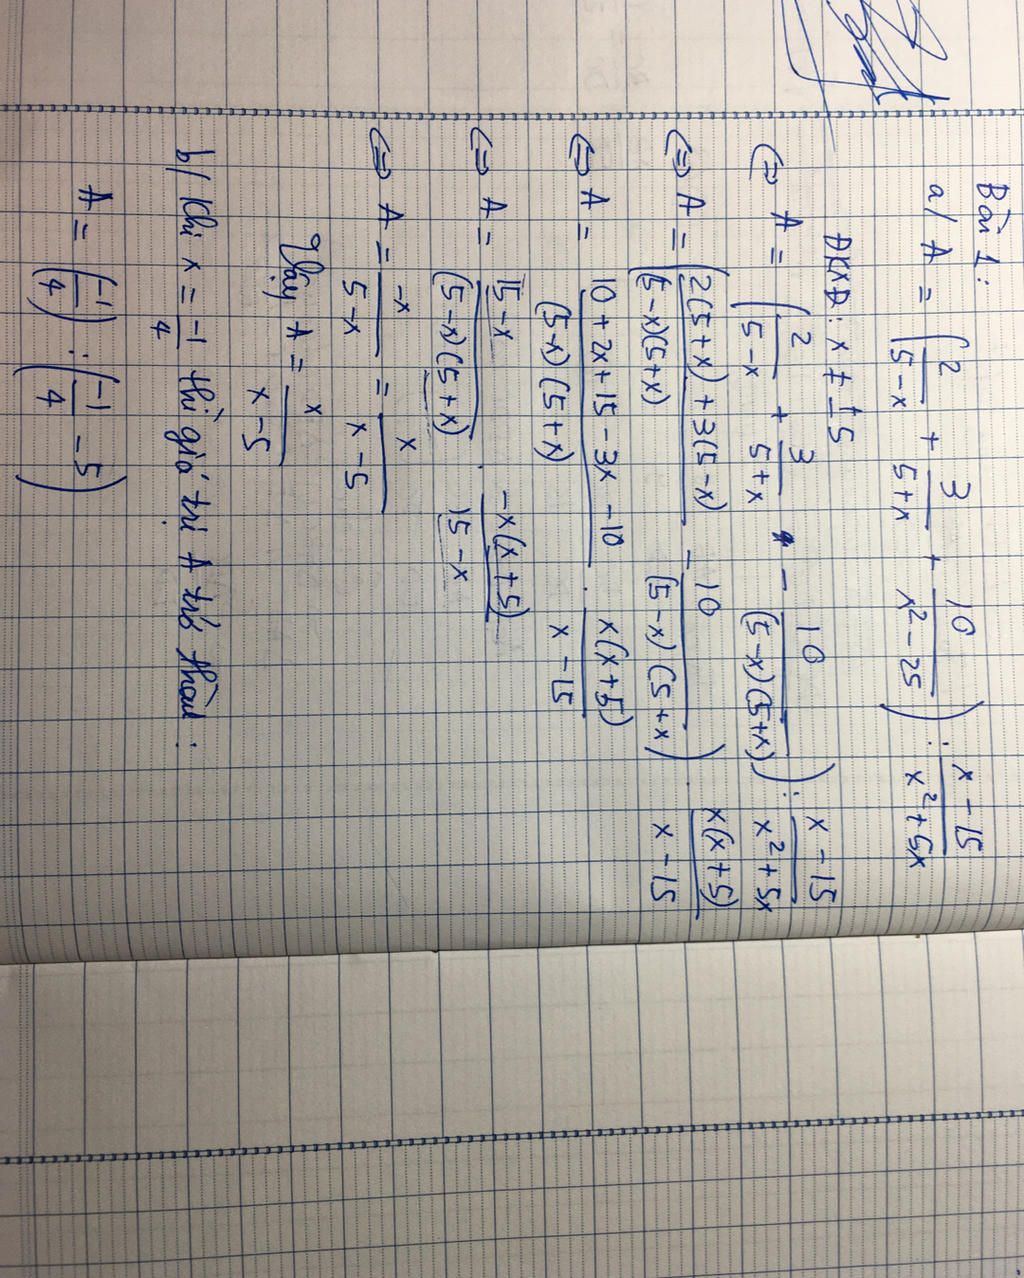 Bài 1:
a/ A = (2/(5-x) + 3/(5+x) + 10/(x²-25)) : (x-15)/(x²+5x)
ĐKXĐ: x ≠ ±5
⇔ A = (2/(5-x) + 3/(5+x) - 10/((5-x)(5+x))) : (x-15)/(x²+5x)
⇔ A = (2(5+x)+3(5-x)/(5-x)(5+x) - 10/(5-x)(5+x)) . x(x+5)/(x-15)
⇔ A = 10+2x+15-3x-10/(5-x)(5+x) . x(x+5)/(x-15)
⇔ A = 15-x/(5-x)(5+x) . -x(x+5)/(15-x)
⇔ A = -x/(5-x) = x/(x-5)
Vậy A = x/(x-5)
b/ Khi x = -1/4 thì giá trị A trở thành :
A = (-1/4) : (-1/4 - 5)